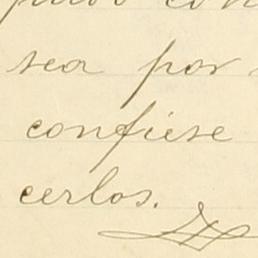 sea por
confiese
cerlos.